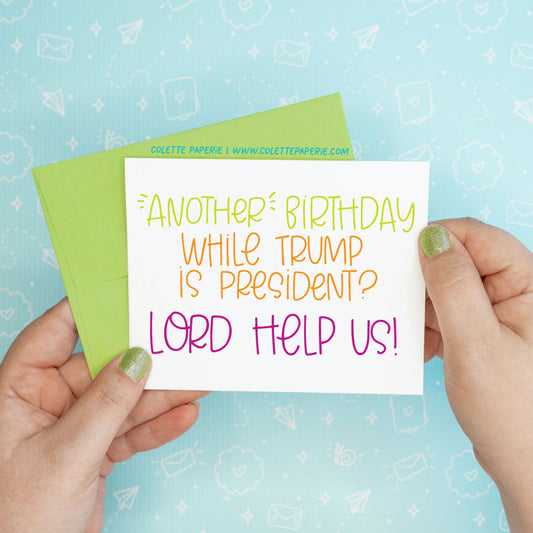 COLETTE PAPERIE | WWW.COLETTEPAPERIE.COM
ANOTHER BIRTHDAY
WHILE TRUMP
IS PRESIDENT?
LORD HELP US!